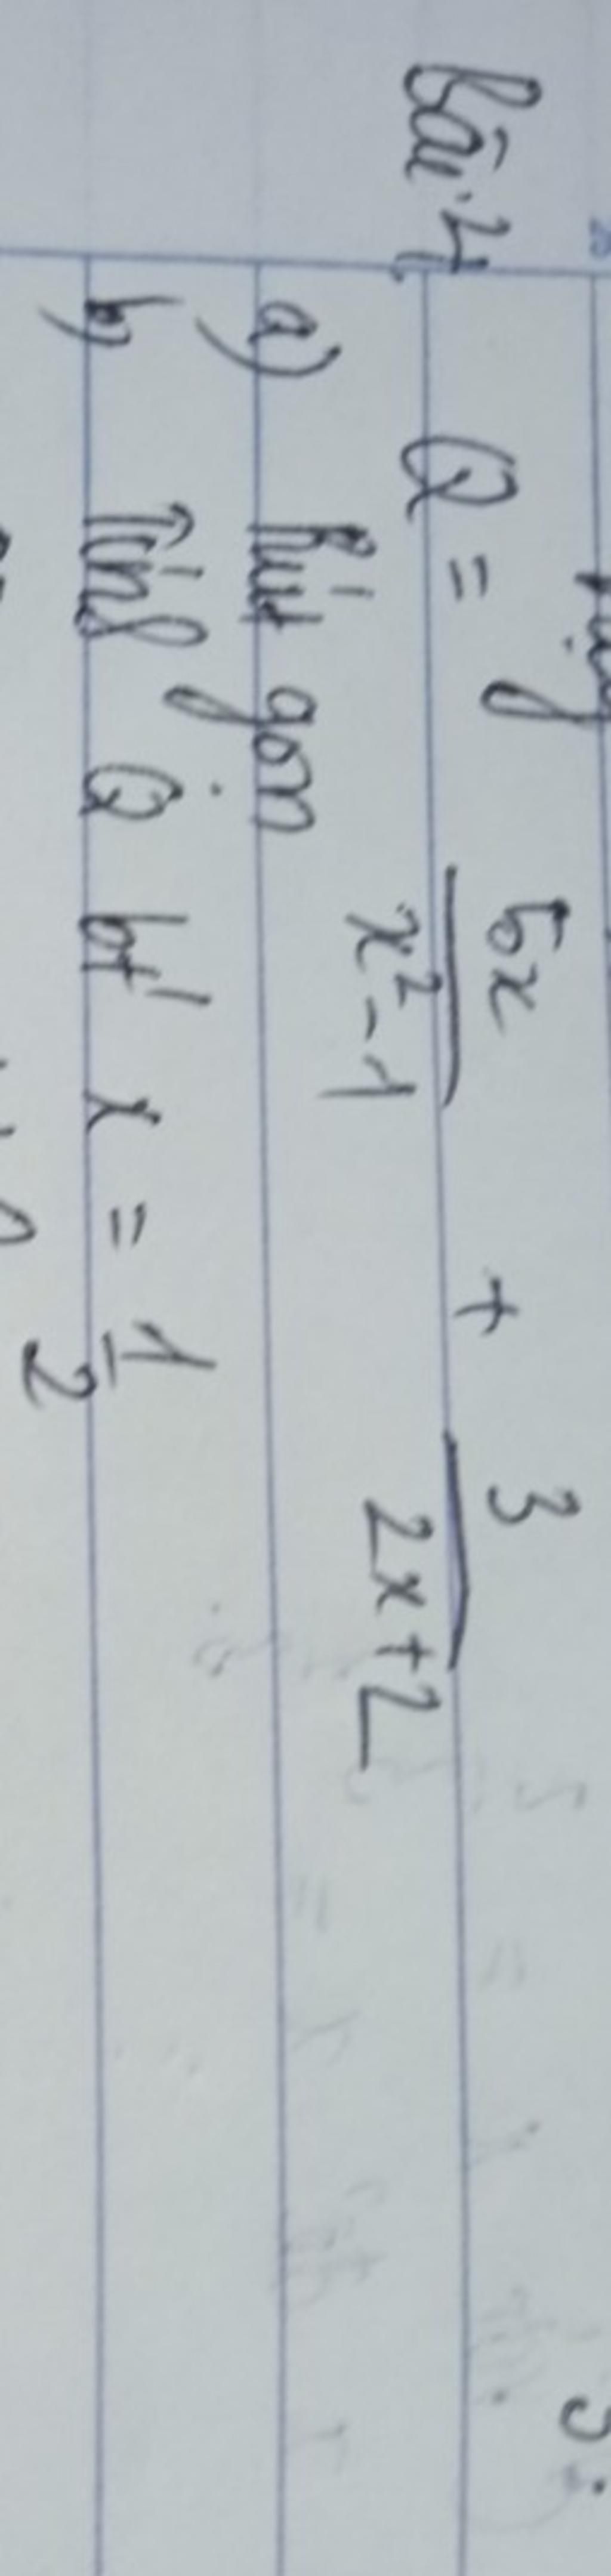 Bài 4
Q = 5x / x² - 1 + 3 / 2x + 2
a) Rút gọn
b) Tính Q bt x = 1/2